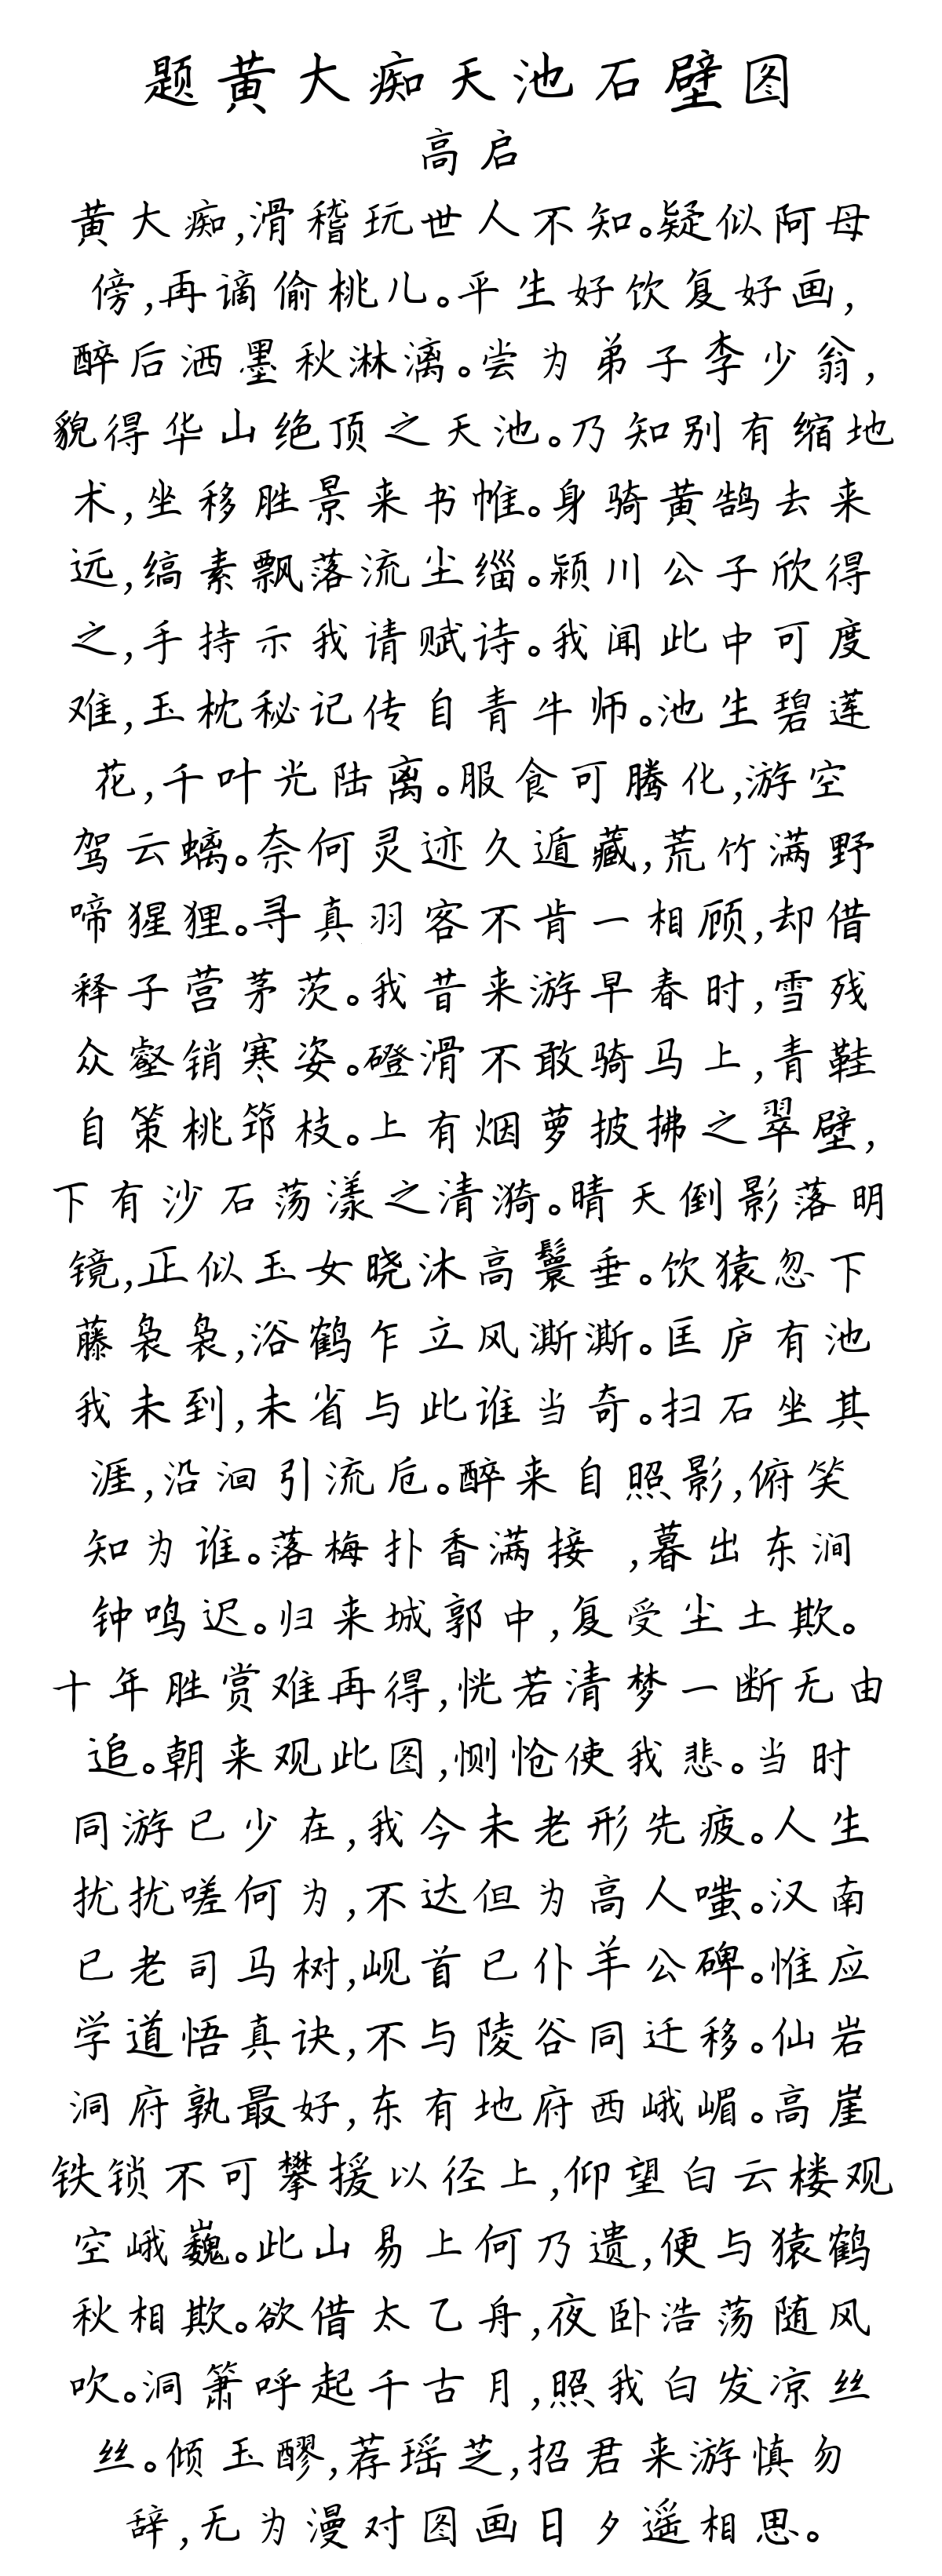 题黄大痴天池石壁图
高启
黄大痴,滑稽玩世人不知。疑似阿母
傍,再谪偷桃儿。平生好饮复好画,
醉后洒墨秋淋漓。尝为弟子李少翁,
貌得华山绝顶之天池。乃知别有缩地
术,坐移胜景来书帷。身骑黄鹄去来
远,缟素飘落流尘缁。颍川公子欣得
之,手持示我请赋诗。我闻此中可度
难,玉枕秘记传自青牛师。池生碧莲
花,千叶光陆离。服食可腾化,游空
驾云螭。奈何灵迹久遁藏,荒竹满野
啼猩狸。寻真羽客不肯一相顾,却借
释子营茅茨。我昔来游早春时,雪残
众壑销寒姿。磴滑不敢骑马上,青鞋
自策桃筇枝。上有烟萝披拂之翠壁,
下有沙石荡漾之清漪。晴天倒影落明
镜,正似玉女晓沐高鬟垂。饮猿忽下
藤袅袅,浴鹤乍立风澌澌。匡庐有池
我未到,未省与此谁当奇。扫石坐其
涯,沿洄引流卮。醉来自照影,俯笑
知为谁。落梅扑香满接 ,暮出东涧
钟鸣迟。归来城郭中,复受尘土欺。
十年胜赏难再得,恍若清梦一断无由
追。朝来观此图,恻怆使我悲。当时
同游已少在,我今未老形先疲。人生
扰扰嗟何为,不达但为高人嗤。汉南
已老司马树,岘首已仆羊公碑。惟应
学道悟真诀,不与陵谷同迁移。仙岩
洞府孰最好,东有地府西峨嵋。高崖
铁锁不可攀援以径上,仰望白云楼观
空峨巍。此山易上何乃遗,便与猿鹤
秋相欺。欲借太乙舟,夜卧浩荡随风
吹。洞箫呼起千古月,照我白发凉丝
丝。倾玉醪,荐瑶芝,招君来游慎勿
辞,无为漫对图画日夕遥相思。